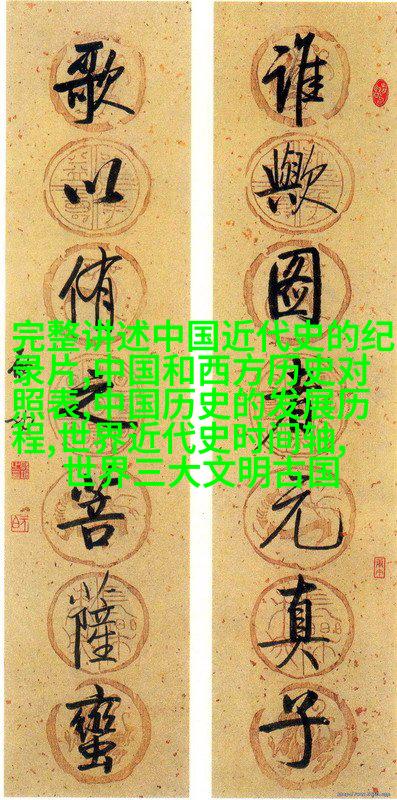 完整讲述中国近代史的纪
录片,中国和西方历史对
照表,中国历史的发展历
程,世界近代史时间轴,
世界三大文明古国
谁歟图元真子
歌以侑之菩薩蠻